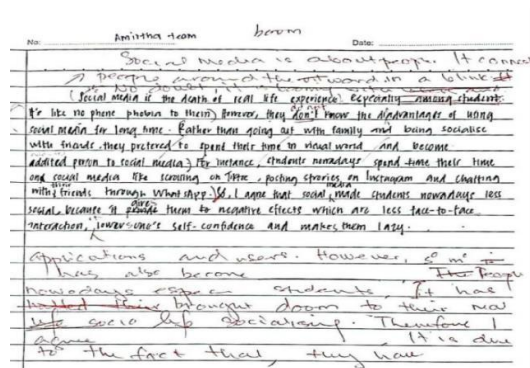 Amirtha team boom
No: Date:
Social media is about people. It connect
people around the world in a blink
(Social media is the death of real life experience) especially among students.
It's like no phone phobia to them. However, they don't know the disadvantages of using
social media for long time. Rather than going out with family and being socialise
with friends, they prefered to spend their time in visual world and become
addited person to social media) For instance, students nowadays spend time their time
on social media like scrolling on , posting stories on Instagram and chatting
with friends through WhatsApp. So, I agree that social media made students nowadays less
social, because it provide give them to negative effects which are less face-to-face
interaction, lowers one's self-confidence and makes them lazy.
Applications and users. However, s m
has also become The People
nowadays students. It has
brought doom to their real
life socio socialising. Therefore I
agree It is due
to the fact that, they have